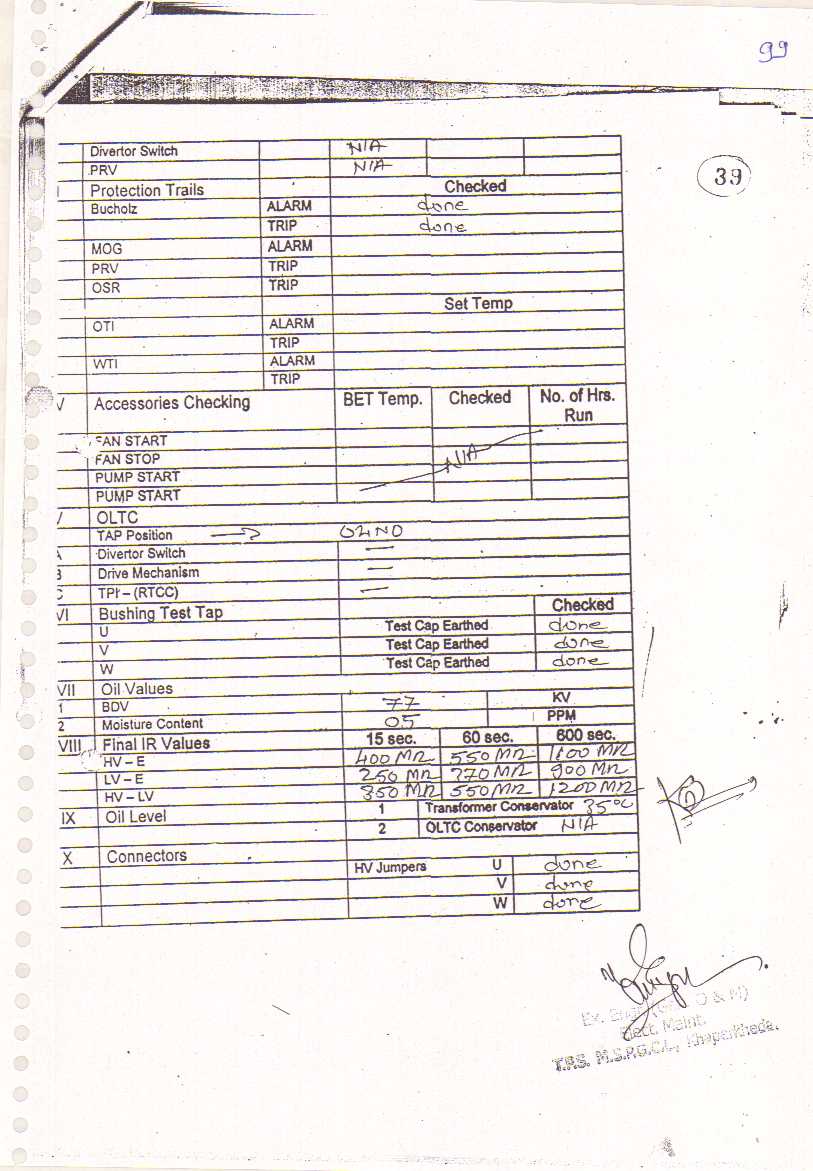 99
39
Divertor Switch N/A
PRV N/A
Protection Trails Checked
Bucholz ALARM done
TRIP done
MOG ALARM
PRV TRIP
OSR TRIP
Set Temp
OTI ALARM
TRIP
WTI ALARM
TRIP
V Accessories Checking BET Temp. Checked No. of Hrs. Run
FAN START
FAN STOP N/A
PUMP START
PUMP START
V OLTC
TAP Position
A Divertor Switch —
B Drive Mechanism —
C TPI – (RTCC) —
VI Bushing Test Tap Checked
U Test Cap Earthed done
V Test Cap Earthed done
W Test Cap Earthed done
VII Oil Values
1 BDV 77 KV
2 Moisture Content 05 PPM
VIII Final IR Values 15 sec. 60 sec. 600 sec.
HV – E 400 MΩ 550 MΩ 1100 MΩ
LV – E 250 MΩ 770 MΩ 900 MΩ
HV – LV 350 MΩ 550 MΩ 1200 MΩ
IX Oil Level 1 Transformer Conservator 35°C
2 OLTC Conservator N/A
X Connectors
HV Jumpers U done
V done
W done
Elect. Maint.
T.P.S. M.S.P.G.C.L., Khaperkheda.